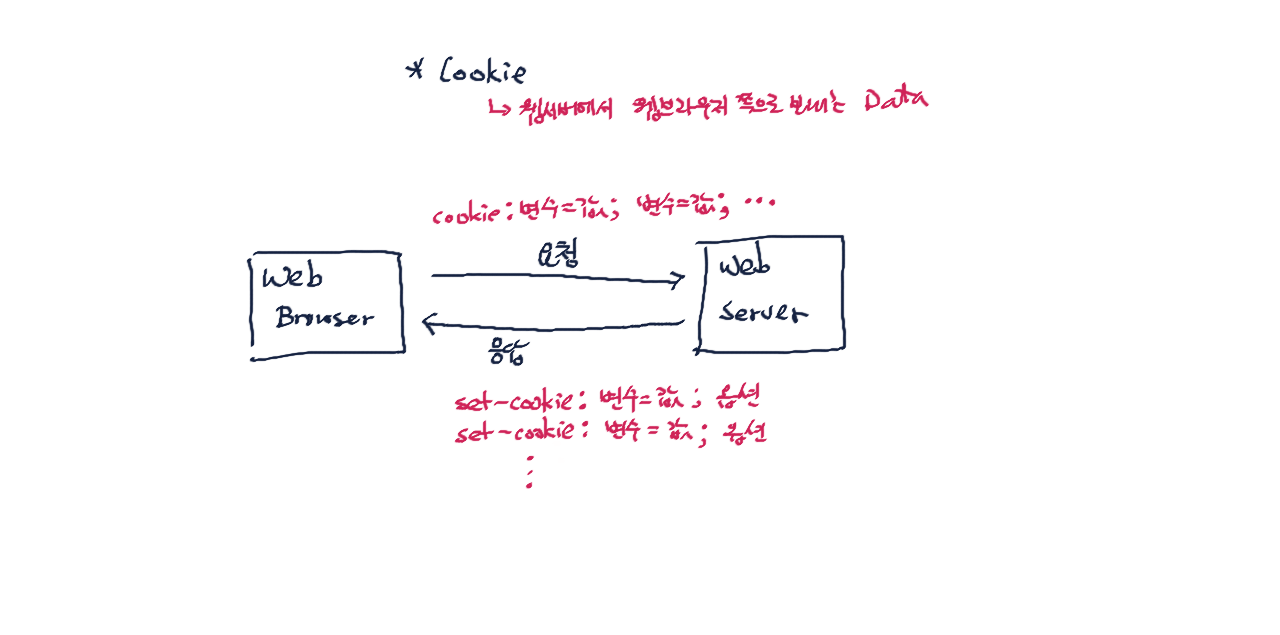 * Cookie
↳ 웹서버에서 웹브라우저 쪽으로 보내는 Data
cookie: 변수=값; 변수=값; ...
요청
Web
Browser
Web
Server
응답
set-cookie: 변수=값; 옵션
set-cookie: 변수=값; 옵션
⋮